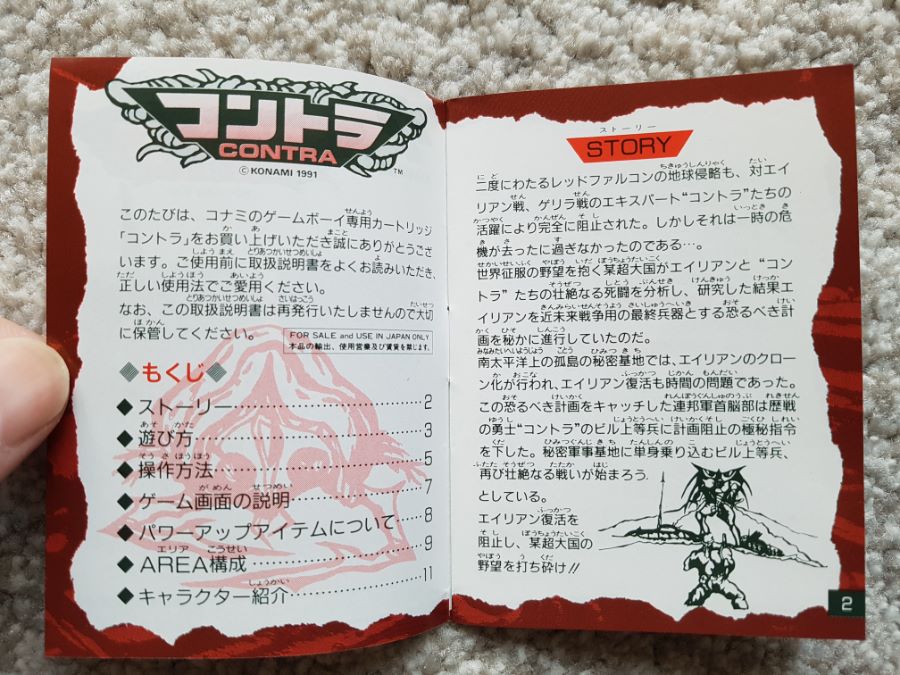 コントラ
CONTRA
™
©KONAMI 1991
このたびは、コナミのゲームボーイ専用カートリッジ
「コントラ」をお買い上げいただき誠にありがとうござ
います。ご使用前に取扱説明書をよくお読みいただき、
正しい使用法でご愛用ください。
なお、この取扱説明書は再発行いたしませんので大切
に保管してください。
FOR SALE and USE IN JAPAN ONLY
本品の輸出、使用営業及び賃貸を禁じます。
◆もくじ◆
◆ストーリー……2
◆遊び方……3
◆操作方法……5
◆ゲーム画面の説明……7
◆パワーアップアイテムについて……8
◆AREA構成……9
◆キャラクター紹介……11
ストーリー
STORY
二度にわたるレッドファルコンの地球侵略も、対エイ
リアン戦、ゲリラ戦のエキスパート“コントラ”たちの
活躍により完全に阻止された。しかしそれは一時の危
機が去ったに過ぎなかったのである…。
世界征服の野望を抱く某超大国がエイリアンと“コン
トラ”たちの壮絶なる死闘を分析し、研究した結果エ
イリアンを近未来戦争用の最終兵器とする恐るべき計
画を秘かに進行していたのだ。
南太平洋上の孤島の秘密基地では、エイリアンのクロー
ン化が行われ、エイリアン復活も時間の問題であった。
この恐るべき計画をキャッチした連邦軍首脳部は歴戦
の勇士“コントラ”のビル上等兵に計画阻止の極秘指令
を下した。秘密軍事基地に単身乗り込むビル上等兵、
再び壮絶なる戦いが始まろう
としている。
エイリアン復活を
阻止し、某超大国の
野望を打ち砕け!!
2